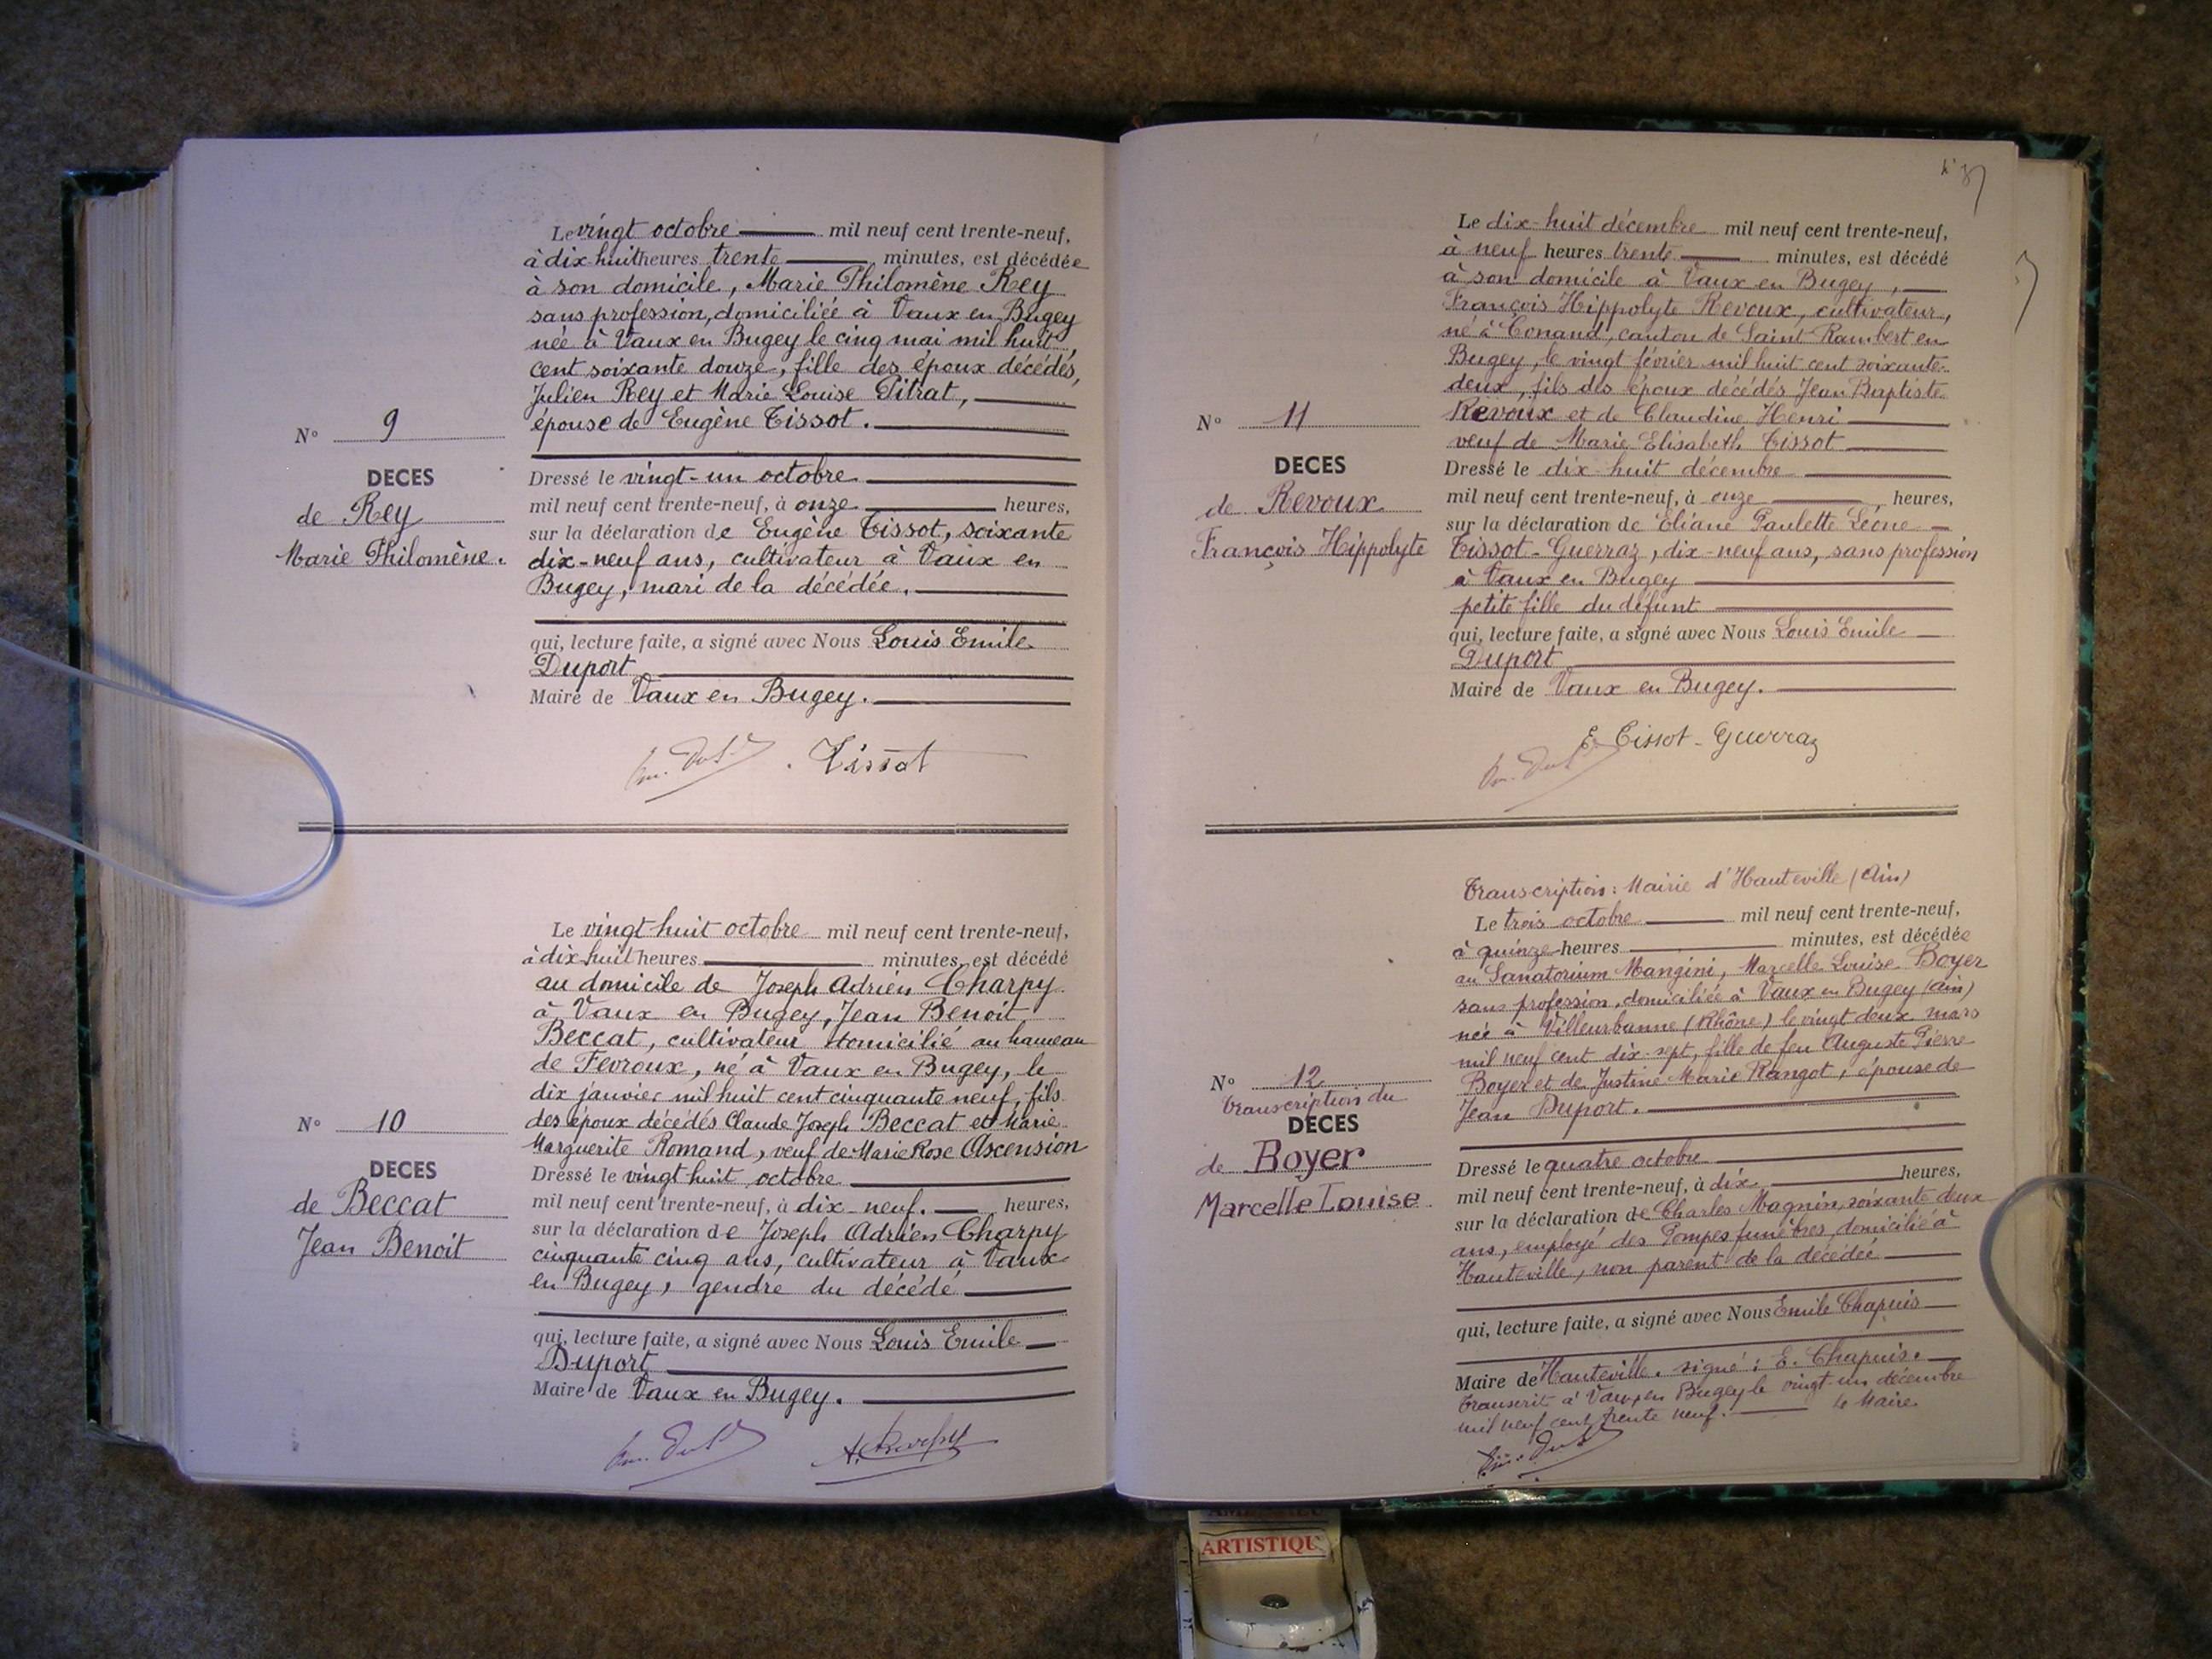 Le vingt octobre mil neuf cent trente-neuf,
à dix-huit heures trente minutes, est décédée
à son domicile, Marie Philomène Rey
sans profession, domiciliée à Vaux en Bugey
née à Vaux en Bugey le cinq mai mil huit
cent soixante douze, fille des époux décédés,
Julien Rey et Marie Louise Pitrat,
épouse de Eugène Tissot.
N° 9
DECES
de Rey
Marie Philomène.
Dressé le vingt-un octobre
mil neuf cent trente-neuf, à onze heures,
sur la déclaration de Eugène Tissot, soixante
dix-neuf ans, cultivateur à Vaux en
Bugey, mari de la décédée.
qui, lecture faite, a signé avec Nous Louis Emile
Duport
Maire de Vaux en Bugey.
Tissot
Le vingt huit octobre mil neuf cent trente-neuf,
à dix-huit heures minutes, est décédé
au domicile de Joseph Adrien Charpy
à Vaux en Bugey, Jean Benoit
Beccat, cultivateur domicilié au hameau
de Fevroux, né à Vaux en Bugey, le
dix janvier mil huit cent cinquante neuf, fils
des époux décédés Claude Joseph Beccat et Marie
Marguerite Romand, veuf de Marie Rose Ascension
N° 10
DECES
de Beccat
Jean Benoit
Dressé le vingt huit octobre
mil neuf cent trente-neuf, à dix-neuf. heures,
sur la déclaration de Joseph Adrien Charpy
cinquante cinq ans, cultivateur à Vaux
en Bugey, gendre du décédé
qui, lecture faite, a signé avec Nous Louis Emile
Duport
Maire de Vaux en Bugey.
Le dix-huit décembre mil neuf cent trente-neuf,
à neuf heures trente minutes, est décédé
à son domicile à Vaux en Bugey,
François Hippolyte Revoux, cultivateur,
né à Conand, canton de Saint Rambert en
Bugey, le vingt février mil huit cent soixante-
deux, fils des époux décédés Jean Baptiste
Revoux et de Claudine Henri
veuf de Marie Elisabeth Tissot
N° 11
DECES
de Revoux
François Hippolyte
Dressé le dix-huit décembre
mil neuf cent trente-neuf, à onze heures,
sur la déclaration de Eliane Paulette Léone
Tissot-Guerraz, dix-neuf ans, sans profession
à Vaux en Bugey
petite fille du défunt
qui, lecture faite, a signé avec Nous Louis Emile
Duport
Maire de Vaux en Bugey.
E. Tissot-Guerraz
Transcription: Mairie d'Hauteville (Ain)
Le trois octobre mil neuf cent trente-neuf,
à quinze heures minutes, est décédée
au Sanatorium Mangini, Marcelle Louise Boyer
sans profession, domiciliée à Vaux en Bugey (Ain)
née à Villeurbanne (Rhône) le vingt deux mars
mil neuf cent dix-sept, fille de feu Auguste Pierre
Boyer et de Justine Marie Rangot, épouse de
Jean Duport.
N° 12
Transcription du
DECES
de Boyer
Marcelle Louise
Dressé le quatre octobre
mil neuf cent trente-neuf, à dix heures,
sur la déclaration de Charles Magnin, soixante deux
ans, employé des Pompes funèbres, domicilié à
Hauteville, non parent de la décédée
qui, lecture faite, a signé avec Nous Emile Chapuis
Maire de Hauteville. signé: E. Chapuis.
Transcrit à Vaux en Bugey le vingt-un décembre
mil neuf cent trente neuf. le Maire
ARTISTIQU